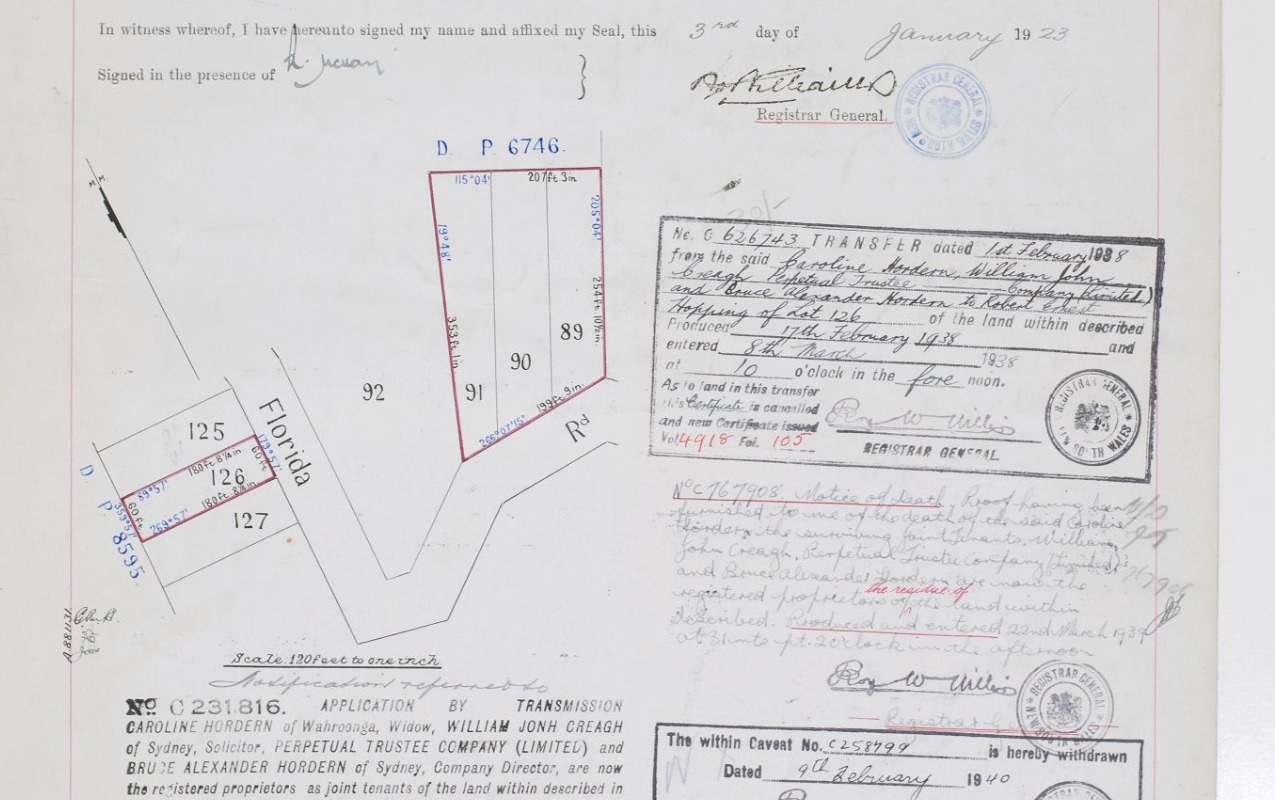 In witness whereof, I have hereunto signed my name and affixed my Seal, this 3rd day of January 1923
Signed in the presence of
Registrar General.
REGISTRAR GENERAL NEW SOUTH WALES
D. P. 6746.
115°04'
207ft 3in
205°04'
19°48'
254ft 10½in
353ft 1in
89
90
91
92
199ft 9in
206°07'15"
Rd
Florida
125
180ft 8¼in
179°57'
60ft
126
89°57'
180ft 8¼in
60ft
359°57'
269°57'
127
D. P. 8595
A.881131
Scale 120 feet to one inch
Notification referred to
No C 231.816. APPLICATION BY TRANSMISSION
CAROLINE HORDERN of Wahroonga, Widow, WILLIAM JONH CREAGH
of Sydney, Solicitor, PERPETUAL TRUSTEE COMPANY (LIMITED) and
BRUCE ALEXANDER HORDERN of Sydney, Company Director, are now
the registered proprietors as joint tenants of the land within described in
20/-
No. C 626743 TRANSFER dated 1st February 1938
from the said Caroline Hordern, William John
Creagh Perpetual Trustee Company (Limited)
and Bruce Alexander Hordern to Robert Ernest
Hopping of Lot 126 of the land within described
Produced 17th February 1938 and
entered 8th March 1938
at 10 o'clock in the fore noon.
As to land in this transfer
this Certificate is cancelled
and new Certificate issued
Vol 4918 Fol. 105
Roy W Willis
REGISTRAR GENERAL
REGISTRAR GENERAL NEW SOUTH WALES
No C767908. Notice of Death, Proof having been
furnished to me of the death of the said Caroline
Hordern the surviving Joint Tenants, William
John Creagh, Perpetual Trustee Company (Limited)
and Bruce Alexander Hordern are now the
registered proprietors of the residue of the land within
described. Produced and entered 22nd March 1939
at 31 mts pt. 2 o'clock in the afternoon
767908
Roy W Willis
Registrar
REGISTRAR GENERAL NEW SOUTH WALES
The within Caveat No. C258799 is hereby withdrawn
Dated 9th February 1940
REGISTRAR GENERAL